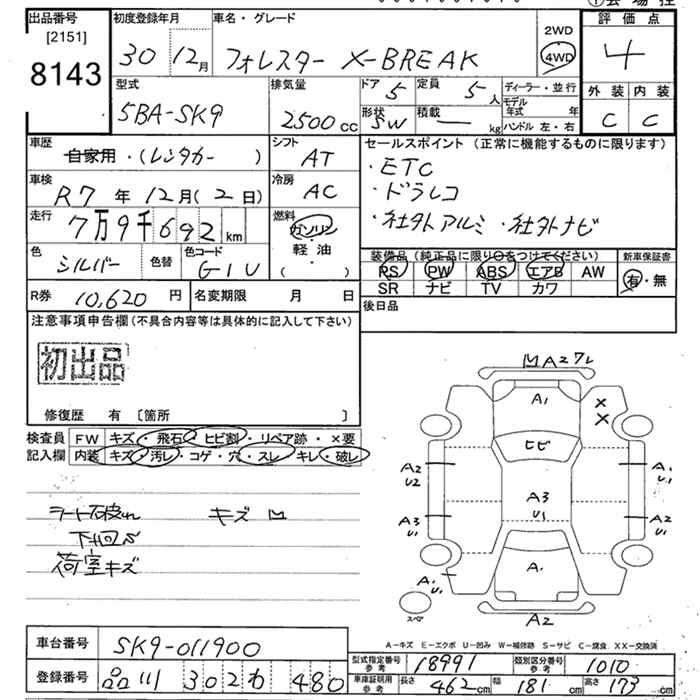 出品番号 [2151] 8143
初度登録年月 30 12月
車名・グレード フォレスター X-BREAK
2WD 4WD
評価点 4
外装 C 内装 C
型式 5BA-SK9
排気量 2500 cc
ドア 5 定員 5 人
形状 SW 積載 ― kg
ディーラー・並行
モデル年式 年
ハンドル 左・右
車歴 自家用・(レンタカー )
シフト AT
車検 R7 年 12月(2日)
冷房 AC
走行 7万9千692 km
燃料 ガソリン・軽油 ( )
色 シルバー 色替 色コード G1U
R券 10,620 円 名変期限 月 日
セールスポイント (正常に機能するものに限ります)
・ETC
・ドラレコ
・社外アルミ ・社外ナビ
装備品 (純正品に限り○をつけてください) 新車保証書
RS PW ABS エアB AW 有・無
SR ナビ TV カワ
後日品
注意事項申告欄 (不具合内容等は具体的に記入して下さい)
初出品
修復歴 有 〔箇所 〕
検査員 FW キズ・飛石・ヒビ割・リペア跡・×要
記入欄 内装 キズ・汚レ・コゲ・穴・スレ・キレ・破レ
キズ
下回
荷室キズ
A2
A1 X X
ヒビ
A2 U2 A1 U1
A3 U1
A3 U1 A2 U1
A1
A1 U1
スペア A2
A―キズ E―エクボ U―凹み W―補修跡 S―サビ C―腐食 XX―交換済
車台番号 SK9-011900
型式指定番号 参考 18991 類別区分番号 参考 1010
登録番号 品川 302 わ 480
車庫証明用 参考 長さ 462 cm 幅 181 cm 高さ 173 cm